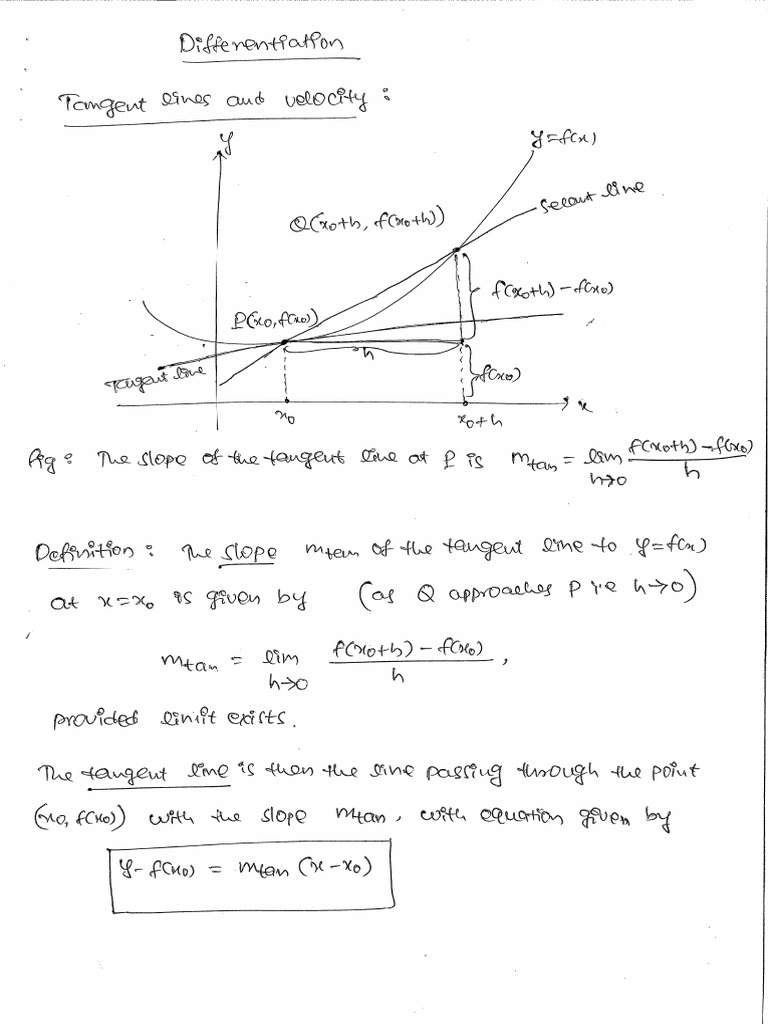 Differentiation
Tangent lines and velocity :
y
y=f(x)
Secant line
Q(x0+h, f(x0+h))
f(x0+h) - f(x0)
P(x0, f(x0))
h
f(x0)
Tangent line
x0
x0+h
x
Fig : The slope of the tangent line at P is mtan = lim h→0 f(x0+h) - f(x0) / h
Definition : The slope mtan of the tangent line to y=f(x)
at x=x0 is given by (as Q approaches P i.e h→0)
mtan = lim h→0 f(x0+h) - f(x0) / h ,
provided limit exists.
The tangent line is then the line passing through the point
(x0, f(x0)) with the slope mtan, with equation given by
y - f(x0) = mtan (x - x0)